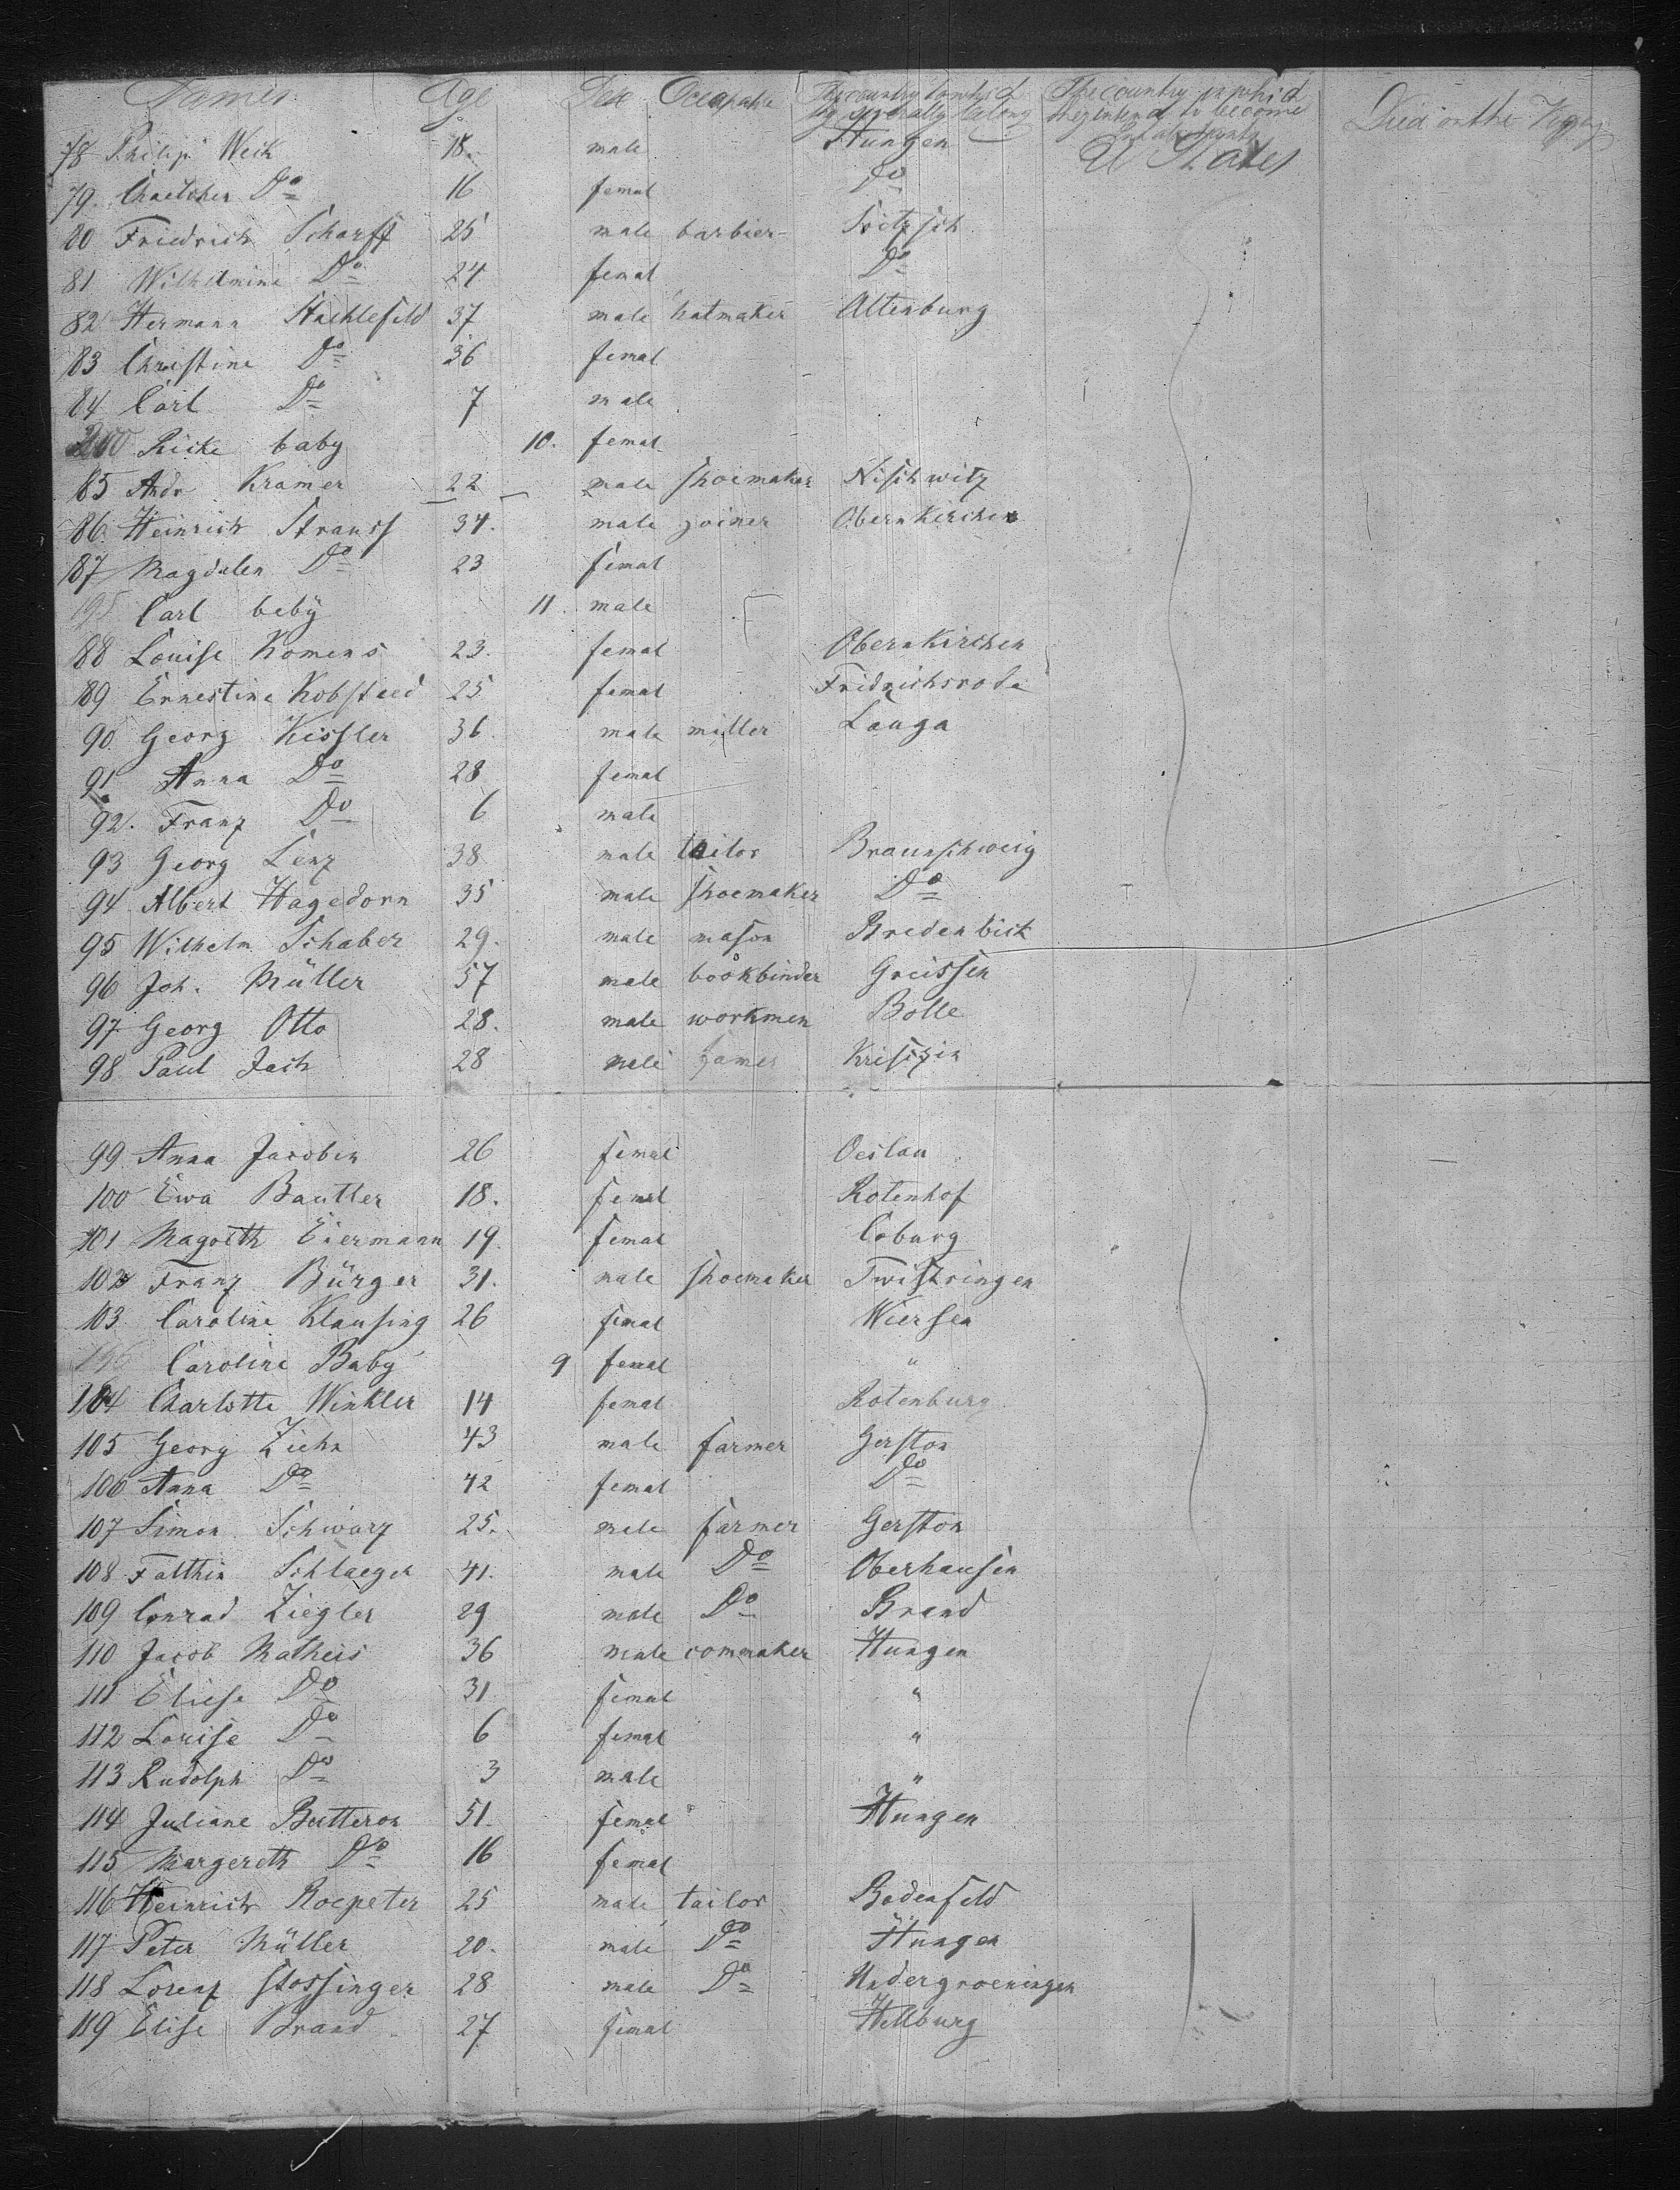 Names Age Sex Occupatie The country to which they severally belong The country in which they intend to become Inhabitants Died on the Voyage
78 Philip Weik 18. male Hungen U States
79. Do 16 femal Do
80 Friedrich Scharff 25 male barbier
81 Wilhelmine Do 24 femal Do
82 Hermann Stachlefeld 37 male hatmaker Altenburg
83 Christine Do 36 femal
84 Carl Do 7 male
Ricke baby 10. femal
85 Andr Kramer 22 male shoemaker Nischwitz
86. Heinrich Strauss 34. male joiner Obernkirchen
87 Magdalen Do 23 femal
195 Carl beby 11. male
88 Louise Komens 23. femal Obernkirchen
89 Ernestine Kobstaed 25 femal Fridrichsroda
90 Georg Kessler 36. male miller Lauga
91 Anna Do 28 femal
92. Franz Do 6 male
93 Georg Lenz 38. male tailor Braunschweig
94 Albert Hagedorn 35 male shoemaker Do
95 Wilhelm Schaber 29. male mason Bredenbick
96 Joh. Müller 57 male bookbinder Greissen
97 Georg Otto 28. male workmen Bolle
98 Paul Jach 28 male
99 Anna Jacobin 26 femal Oeslau
100 Ewa Bautler 18. femal Rotenhof
101 Magreth Eiermann 19. femal Coburg
102 Franz Bürger 31. male shoemaker Twistringen
103 Caroline Klausing 26 femal Wiersen
196 Caroline Baby 9 femal "
104 Charlotte Winkler 14 femal Rotenburg
105 Georg Ziehn 43 male farmer Gerston
106 Anna Do 42 femal Do
107 Simon Schwarz 25. male farmer Gerston
108 Falthin Schlaeger 41. male Do Oberhausen
109 Conrad Ziegler 29 male Do Brand
110 Jacob Matheis 36 male commaker Hungen
111 Eliese Do 31 femal "
112 Louise Do 6 femal "
113 Rudolph Do 3 male "
114 Juliane Butteron 51. femal Hungen
115 Margereth Do 16 femal
116 Heinrich Roepeter 25 male tailor Bodenfeld
117 Peter Müller 20. male Do Hungen
118 Lorenz Stossinger 28 male Do Undergroeningen
119 Elise Brand 27 femal Hellburg